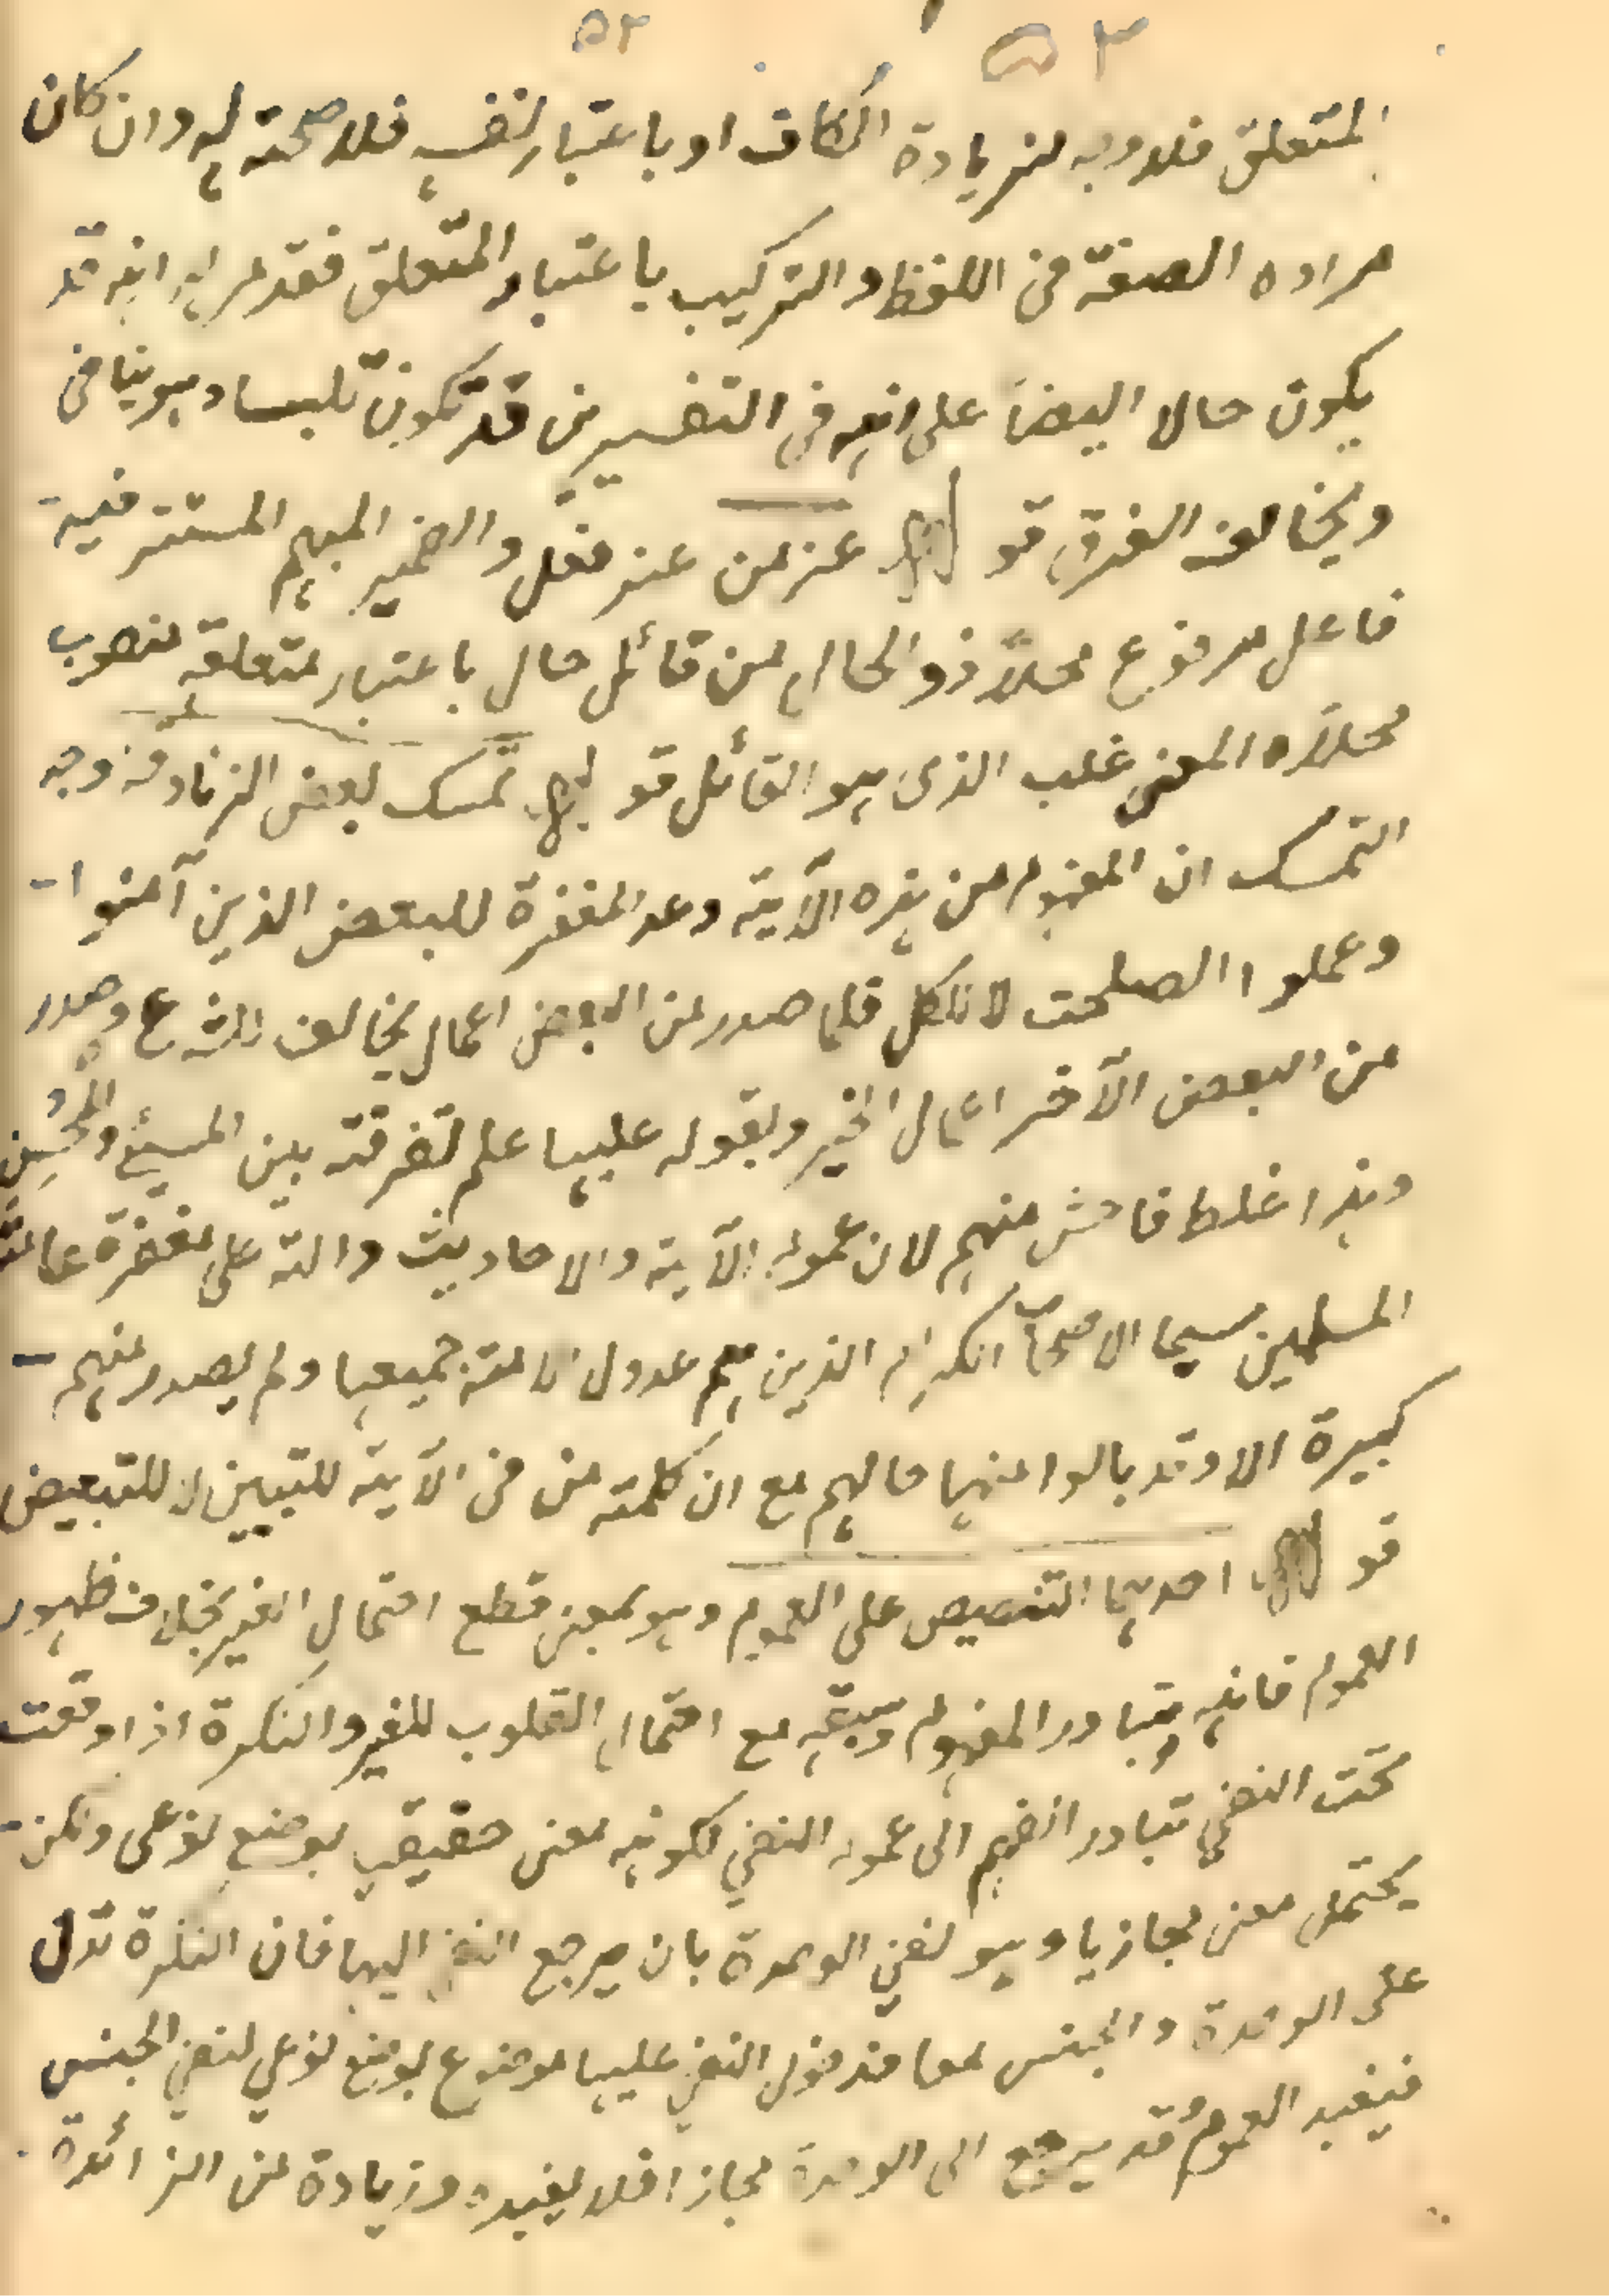 ٥٣ ٥٣
المتعلق فلا وجه لزيادة الكاف او باعتبار نفسه فلا صحة له وان كان
مراده الصفة فى اللفظ والتركيب باعتبار المتعلق فقد مر انه قد
يكون حالا ايضا على انه فى التفسير من قد تكون تلبسا وهو ينافى
ويخالف الفرق قوله عز من عز فعل والضمير المبهم المستتر فيه
فاعل مرفوع محلا ذو الحال من قائل حال باعتبار متعلقه منصوب
محلا والمعنى غلب الذى هو القائل قوله تمسك بعض الزنادقة وجه
التمسك ان المفهوم من هذه الآية وعد المغفرة للبعض الذين آمنوا
وعملوا الصلحت لا لكل فلما صدر من البعض اعمال يخالف الشرع وصدر
من البعض الآخر اعمال الخير وبقوله عليها علم تفرقة بين المسيئ والمحسن
وهذا غلط فاحش منهم لان عموم الآية والاحاديث دالة على مغفرة عامة
المسلمين سيما الاصحاب الكرام الذين هم عدول الامة جميعها ولم يصدر منهم
كبيرة الا وقد بالوا منها حالهم مع ان كلمة من فى الآية للتبيين لا للتبعيض
قوله احدهما التنصيص على العموم وهو بمعنى قطع احتمال الغير بخلاف ظهور
العموم فانه يتبادر المفهوم وسبقه مع احتمال القلوب للغير والنكرة اذا وقعت
تحت النفى تبادر الفهم الى عموم النفى لكونه معنى حقيقى بوضع نوعى ولكن
يحتمل معنى مجازيا وهو لنفى الوحدة بان يرجع النفى اليها فان النكرة تدل
على الوحدة والجنس معا فدخول النفى عليها موضوع بوضع نوعي لنفى الجنس
فيفيد العموم وقد يرجع الى الوحدة مجازا فلا يفيده وزيادة من الزائدة